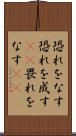 恐れをなす
恐れを成す
××畏れを
なす××